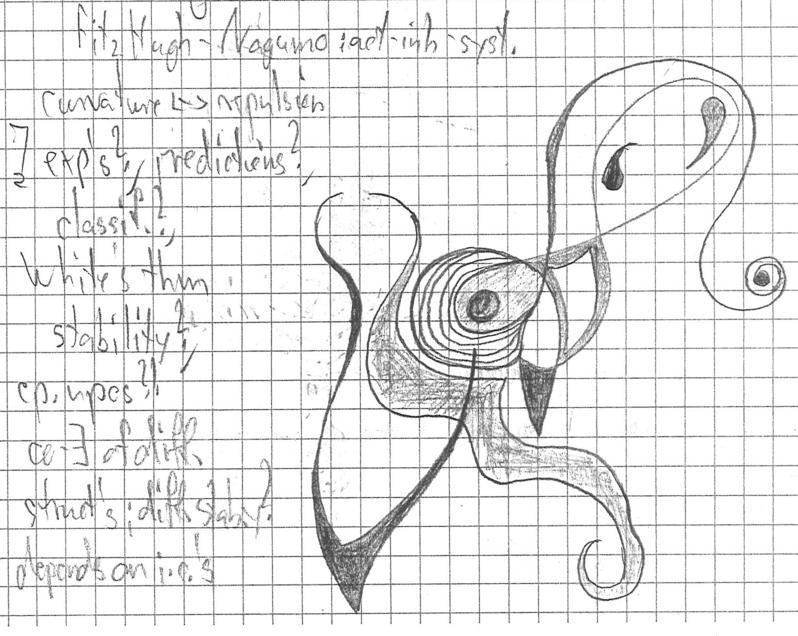 FitzHugh-Nagumo: act-inh-syst.
curvature <-> repulsion
∃ exp's?, predictions?,
classif.?,
White's thm
stability?,
cp. npes?!
co-∃ of diff.
struct's; diff. stabty?
depends on i.c.'s